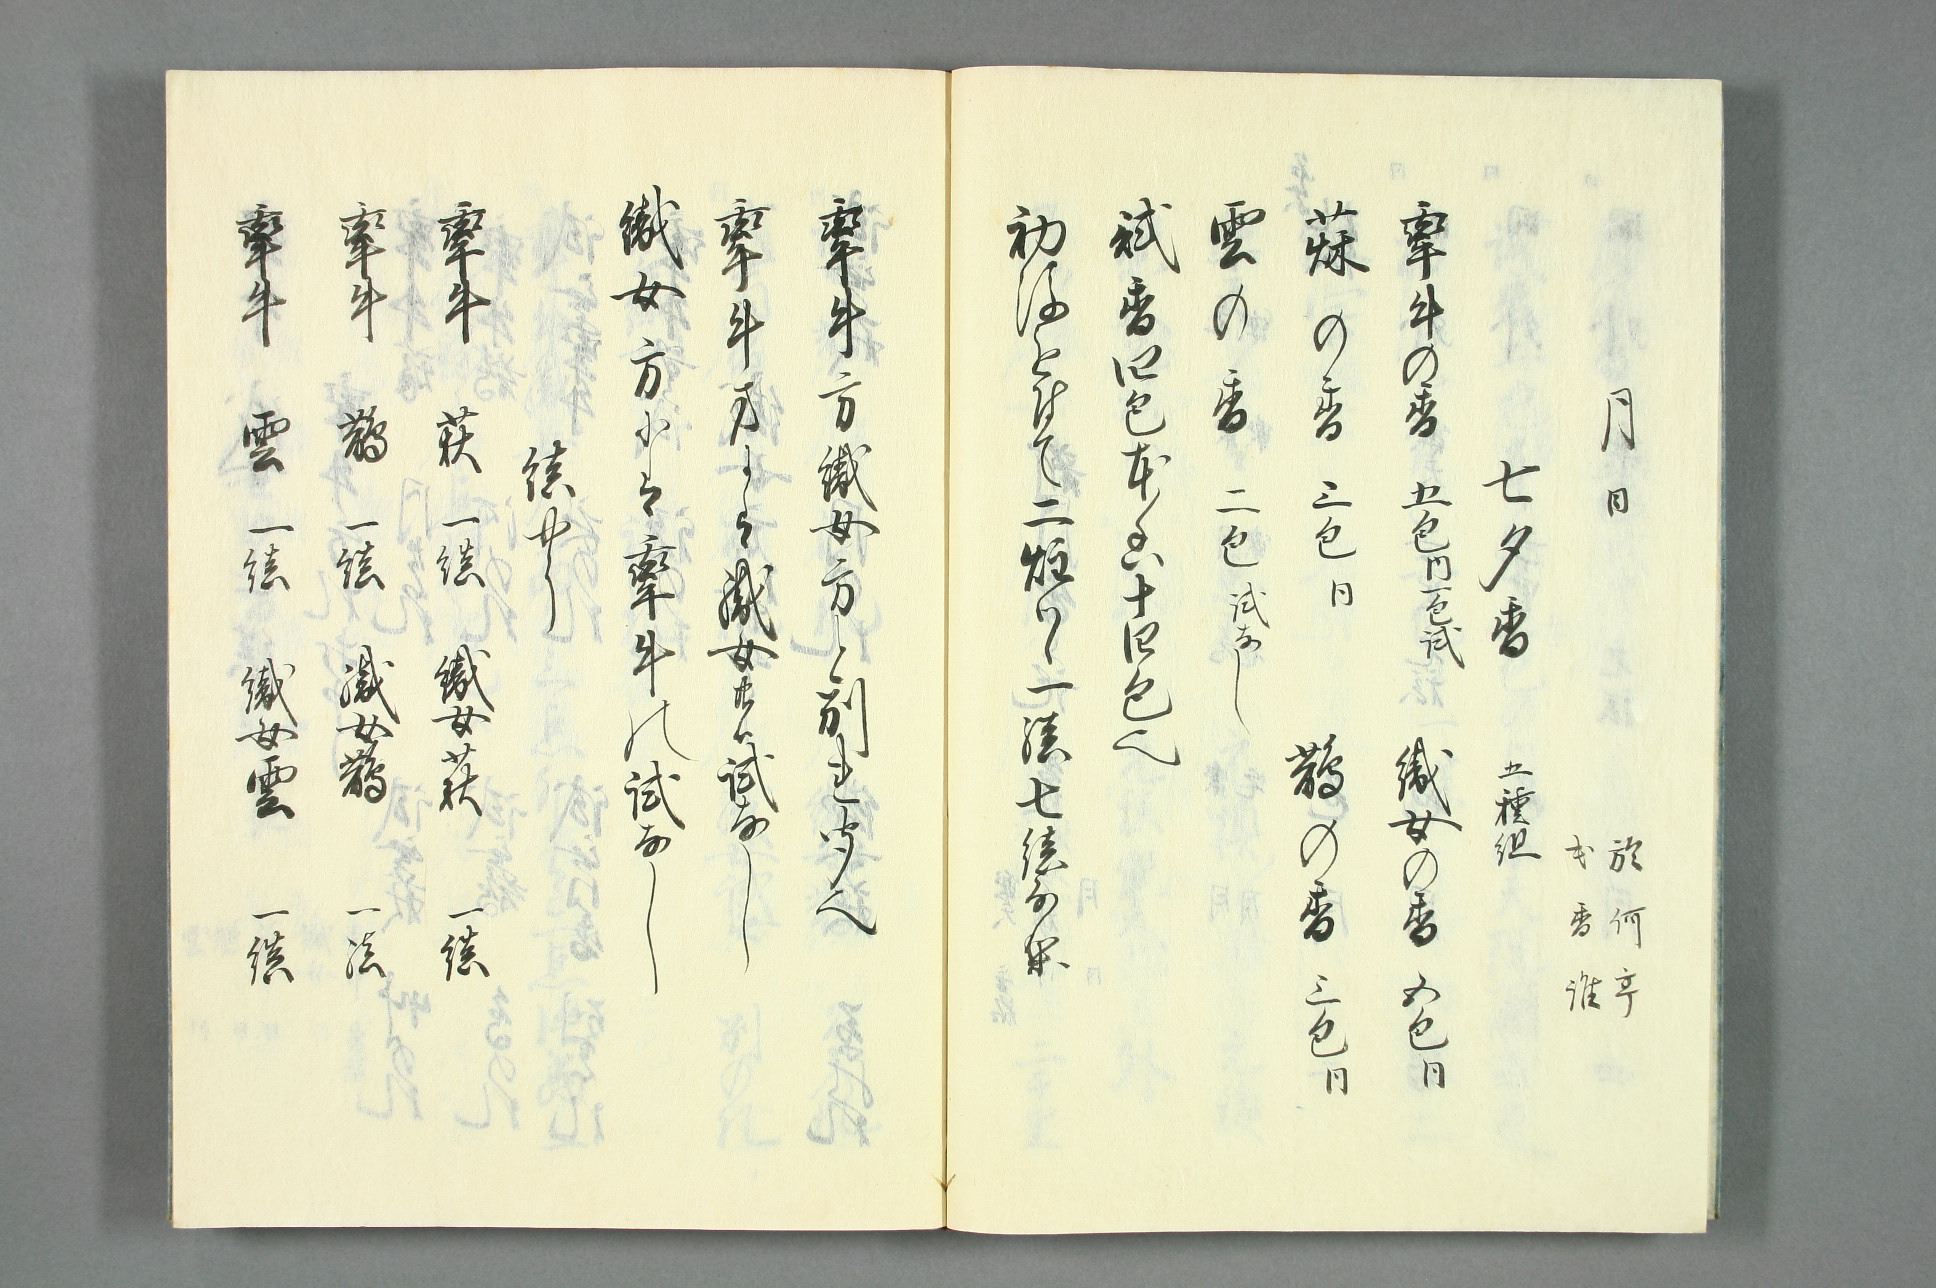 月 日
於何亭
出香誰
七夕香 五種組
牽牛の香 五包内一包試 織女の香 五包同
萩の香 三包同 鵲の香 三包同
雲の香 二包試なし
試香四包本香十四包也
二炷つゝ一結七結
牽牛方織女方と別れ聞く也
牽牛方よりは織女 試なし
織女方よりは牽牛の試なし
結やう
牽牛 萩 一結 織女 萩 一結
牽牛 鵲 一結 織女 鵲 一結
牽牛 雲 一結 織女 雲 一結